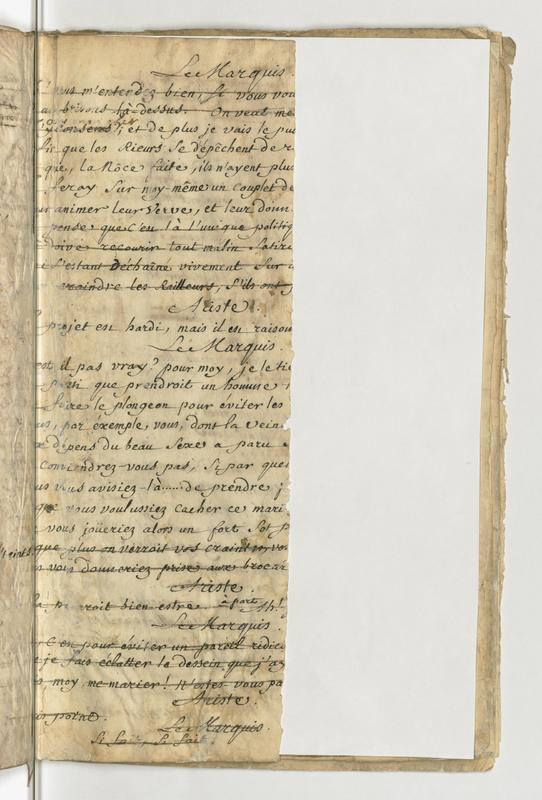 Le Marquis.
vous m'entendez bien, Si vous vou
brisons là-dessus. On veut me
et de plus je vais le pu
que les Rieurs Se dépêchent de r
que, la Nôce faite, ils n'ayent plus
feray Sur moy-même un Couplet de
animer Leur Verve, et leur donn
pense que C'est là l'unique politiq
doive recourir tout malin Satire
S'estant Déchaîné vivement Sur
craindre les Railleurs, S'ils ont
Ariste.
projet est hardi, mais il est raison
Le Marquis.
est il pas vray? pour moy, je le tie
parti que prendroit un homme
faire le plongeon pour éviter les
par exemple vous, dont la Vein
dépens du beau Sexe a paru
Conviendrez-vous pas, Si par quel
vous avisiez-là......de prendre
que vous voulussiez Cacher ce mari
vous joüeriez alors un fort Sot p
que plus on verroit vos craint
vous donneriez prise aux brocar
Ariste.
pourroit bien estre. à part. Ah!
Le Marquis.
C'est pour éviter un pareil ridic
je fais éclatter le dessein que j'ay
moy me marier! N'estes-vous pa
Ariste.
point.
Le Marquis.
Si fait, Si fait.